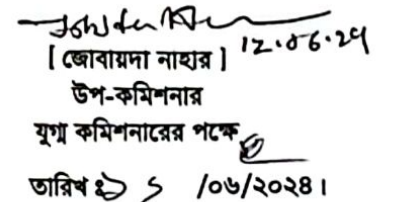 12.06.24
[ জোবায়দা নাহার ]
উপ-কমিশনার
যুগ্ম কমিশনারের পক্ষে
তারিখ ঃ /০৬/২০২৪।